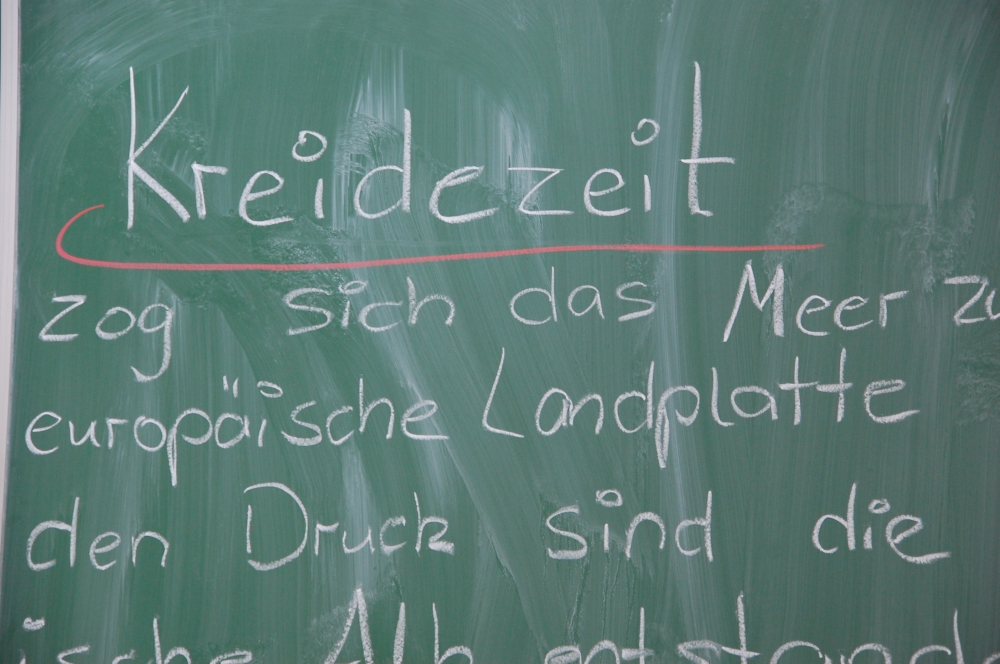 Kreidezeit
zog sich das Meer zu
europäische Landplatte
den Druck sind die
ische Alb entstand